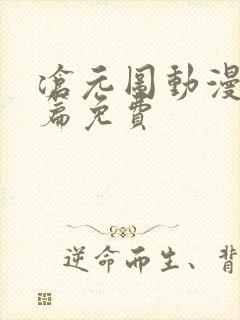 滄元圖動漫
篇免費
逆命而生、背